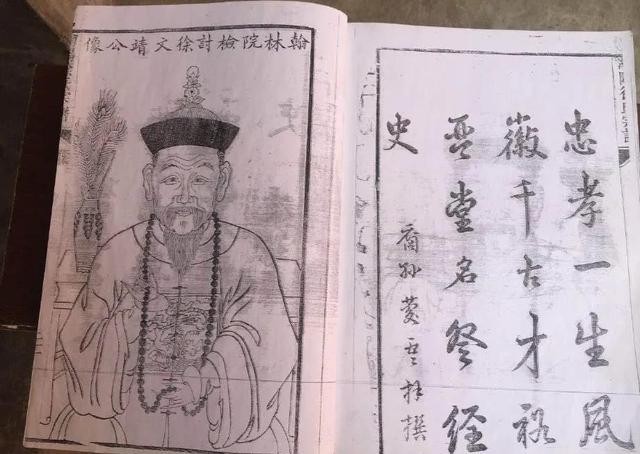 翰林院檢討徐文靖公像
徐氏宗譜
忠孝一生風
徽千古才
堂名經
史
裔孙拜撰